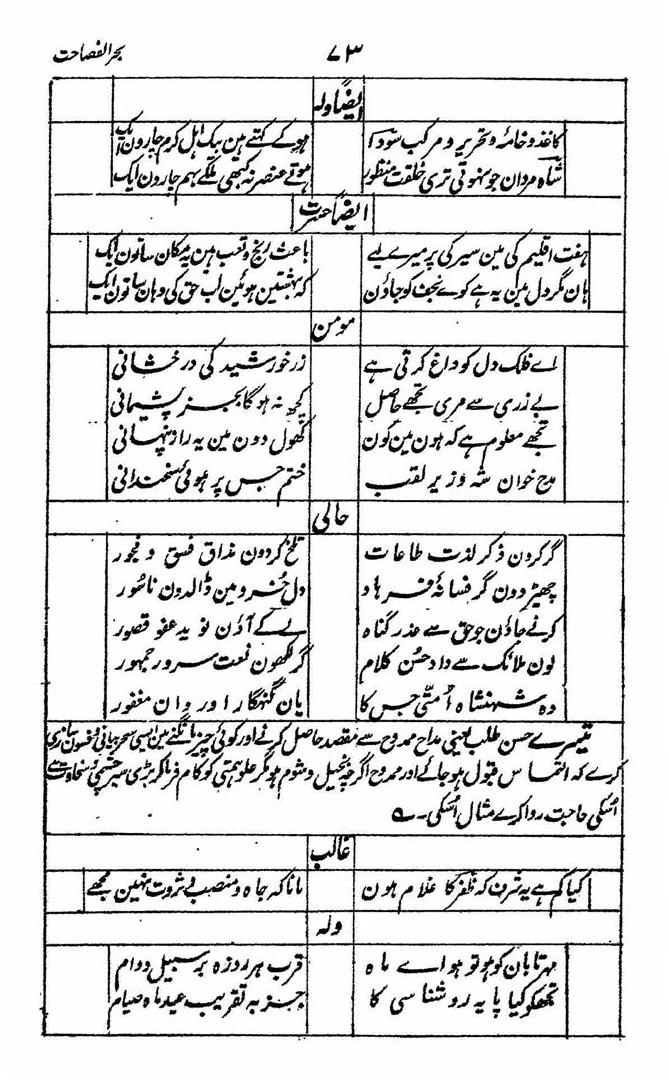 ۷۳
بحر الفصاحت
ایضاً ولہ
کاغذ و خامہ و تحریر و مرکب سودا ہوکے کہتے ہین یک اہل کرم چارون ایک
شاہ مردان جو نہوتی تری خلقت منظور ہوتے عنصر نہ کبھی ملکے بہم چارون ایک
ایضاً حسرت
ہفت اقلیم کی مین سیر کی پر میرے لیے باعث رنج و تعب ہین یہ مکان ساتون ایک
ہان مگر دل مین یہ ہے کوے نجف کو جاؤن کہ بہشتین ہوئین لب حق کی وہان ساتون ایک
مومن
اے فلک دل کو داغ کرتی ہے زر خورشید کی درخشانی
بے زری سے مری تجھے حاصل کچھ نہ ہوگا بجز پشیمانی
تجھے معلوم ہے کہ ہون مین کون کھول دون مین یہ راز پنہانی
مدح خوان شہ وزیر لقب ختم جس پر ہوئی سخندانی
حالی
گر کرون ذکر لذت طاعات تلخ کردون مذاق فسق و فجور
چھیڑ دون گر فسانۂ فرہاد دل خسرو مین ڈالدون ناسور
کرنے جاؤن جو حق سے عذر گناہ لے کے آؤن نوید عفو قصور
لون ملائک سے داد حسن کلام گر لکھون نعت سرور جمہور
وہ شہنشاہ امتی جس کا یان گنہگار اور وان مغفور
تیسرے حسن طلب یعنی مداح ممدوح سے مقصد حاصل کرنے اور کوئی چیز مانگنے مین ایسی سحر بیانی و افسون سازی
کرے کہ التماس قبول ہو جائے اور ممدوح اگرچہ بخیل و شوم ہو مگر علو ہمتی کو کام فرما کر بڑی سیر چشمی و سخاوت سے
اُسکی حاجت روا کرے مثال اُسکی۔
غالب
کیا کم ہے یہ شرف کہ ظفر کا غلام ہون مانا کہ جاہ و منصب و ثروت نہین مجھے
ولہ
مہر تابان کو ہو تو ہو اے ماہ قرب ہر روزہ بر سبیل دوام
تجھکو کیا پایہ روشناسی کا جز بہ تقریب عید ماہ صیام